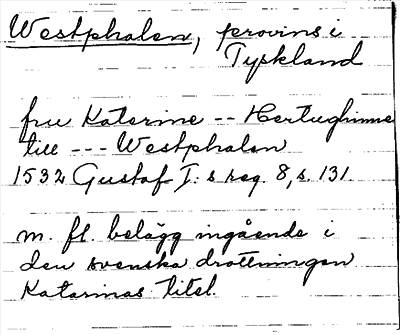 Westphalen, provins i
Tyskland
fru Katerine -- Hertughinne
till --- Westphalen
1532 Gustaf I:s reg. 8, s. 131.
m. fl. belägg ingående i
den svenska drottningen
Katarinas titel.